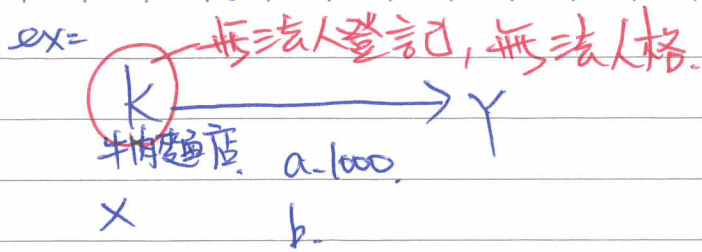 ex=
無法人登記,無法人格.
K → Y
牛肉麵店. a-1000.
X b.